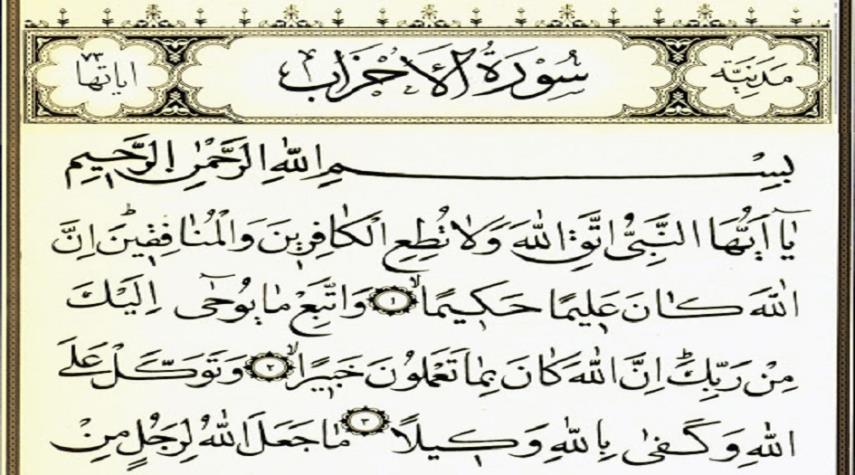 مَدَنِيَّة سُورَةُ الْأَحْزَابِ اياتها ٧٣
بِسْمِ اللهِ الرَّحْمٰنِ الرَّحِيمِ
يَٓا اَيُّهَا النَّبِيُّ اتَّقِ اللهَ وَلَا تُطِعِ الْكَافِرِينَ وَالْمُنَافِقِينَ اِنَّ
اللهَ كَانَ عَلِيمًا حَكِيمًا ﴿١﴾ وَاتَّبِعْ مَا يُوحٰٓى اِلَيْكَ
مِنْ رَبِّكَ اِنَّ اللهَ كَانَ بِمَا تَعْمَلُونَ خَبِيرًا ﴿٢﴾ وَتَوَكَّلْ عَلَى
اللهِ وَكَفٰى بِاللهِ وَكِيلًا ﴿٣﴾ مَا جَعَلَ اللهُ لِرَجُلٍ مِنْ